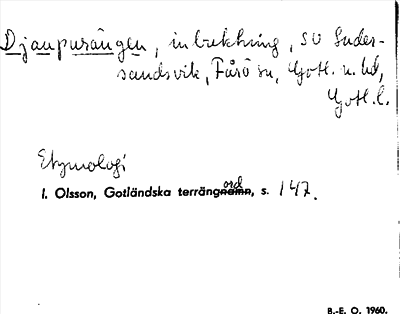 Djaupurängen, inbuktning, SO Suder-
sandsvik, Fårö sn, Gotl. n. hd,
Gotl. l.
Etymologi
I. Olsson, Gotländska terrängord, s. 147.
B.-E. O. 1960.